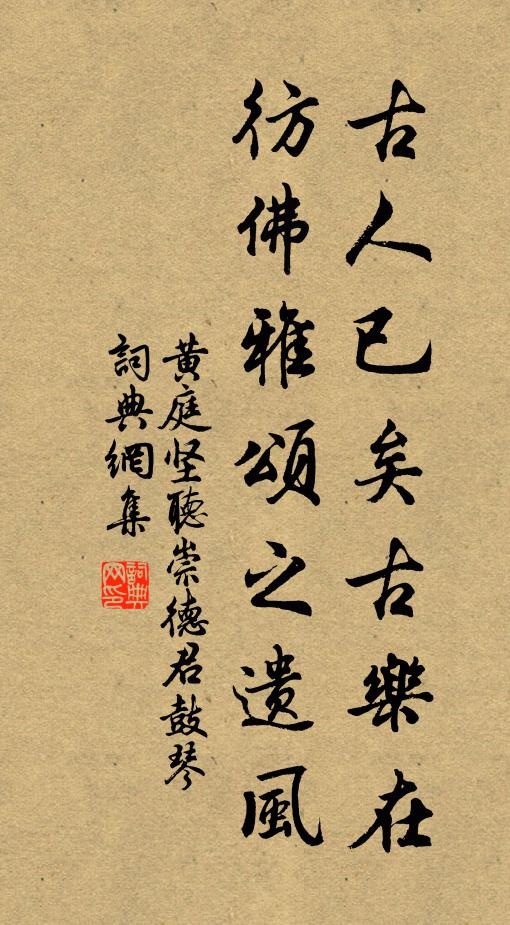 古人已矣古樂在
彷佛雅頌之遺風
黄庭坚聽崇德君鼓琴
詞典網集
詞典网印